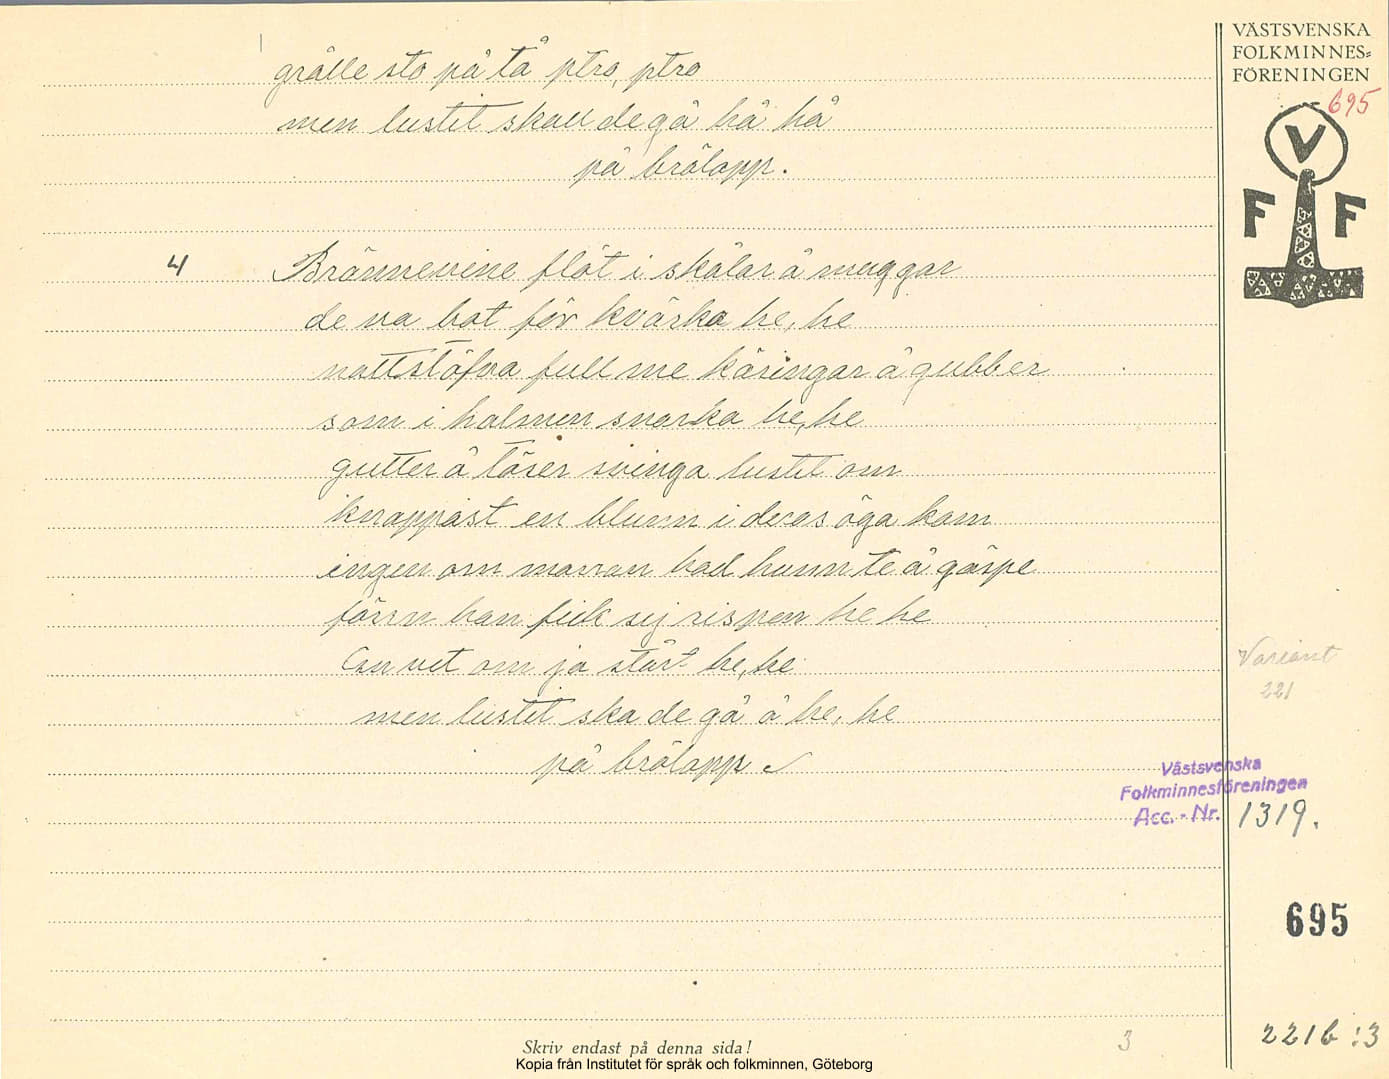 VÄSTSVENSKA
FOLKMINNES-
FÖRENINGEN
695
V
F F
grålle sto på tå ptro, ptro
men lustit skall de gå hå hå
på brölapp.
4 Brännevine flöt i skålar å muggar
de va bot för kvärka he, he
nattstöfva full me käringar å gubber
som i halmen snarka he, he
gutter å töser svinga lustit om
knappast en blunn i deras öga kom
ingen om marran had hunn te å gäspe
förrn han fick sej rispen he he
Can vet om ja stårt he, he
men lustit ska de gå å he, he
på brölapp
Variant
221
Västsvenska
Folkminnesföreningen
Acc. - Nr. 1319.
695
Skriv endast på denna sida!
3
221b : 3
Kopia från Institutet för språk och folkminnen, Göteborg